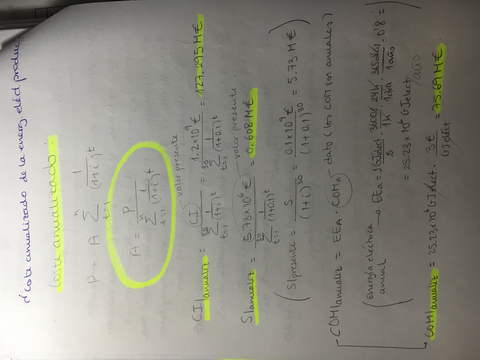 ¿Coste anualizado de la energ eléct produc
Coste anualizado.
P = A \sum_{t=1}^{n} \frac{1}{(1+i)^t}
A = \frac{P}{\sum_{t=1}^{n} \frac{1}{(1+i)^t}}
valor presente
CI|anualiz = \frac{CI}{\sum_{t=1}^{n} \frac{1}{(1+i)^t}} = \frac{1.2×10^9 €}{\sum_{t=1}^{30} \frac{1}{(1+0.1)^t}} = 127.295 M€
valor presente
S|anualiz = \frac{5.73×10^6 €}{\sum_{t=1}^{30} \frac{1}{(1+0.1)^t}} = 0.608 M€
(S|presente = \frac{S}{(1+i)^{30}} = \frac{0.1×10^9 €}{(1+0.1)^{30}} = 5.73 M€)
COM|anualiz = EEA · COMA dato (los COM son anuales)
(Energía eléctrica anual → EEA = 1 GJelect/s · 3600s/1h · 24h/1día · 365días/1año · 0'8 =
= 25.23×10^6 GJelect/año
COM|anualiz = 25.23×10^6 GJelect · 3€/GJeléct = 75.69 M€